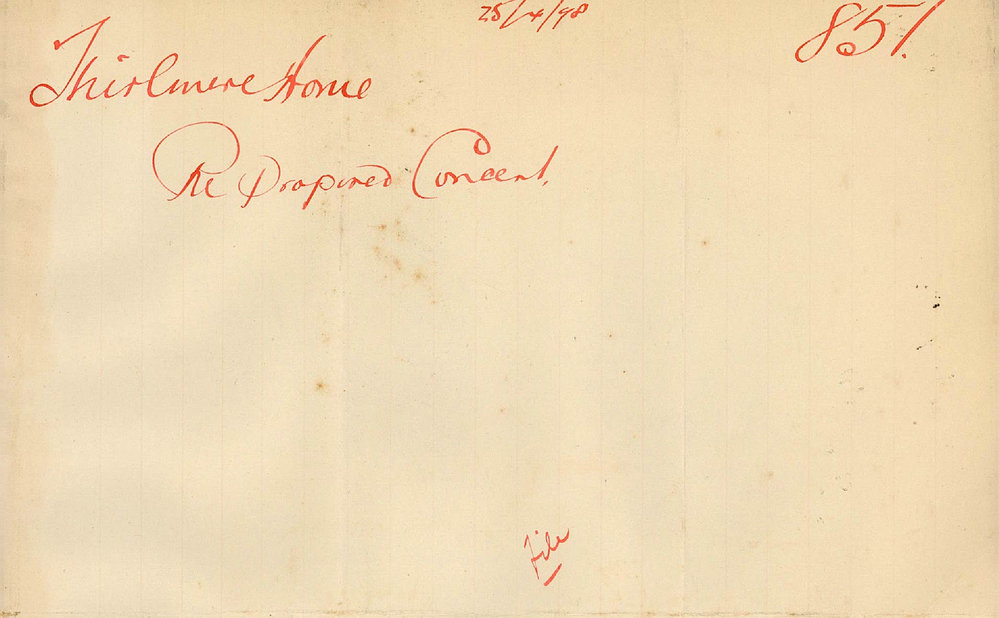 25/4/98
851.
Thirlmere Home
Re Proposed Concert.
file